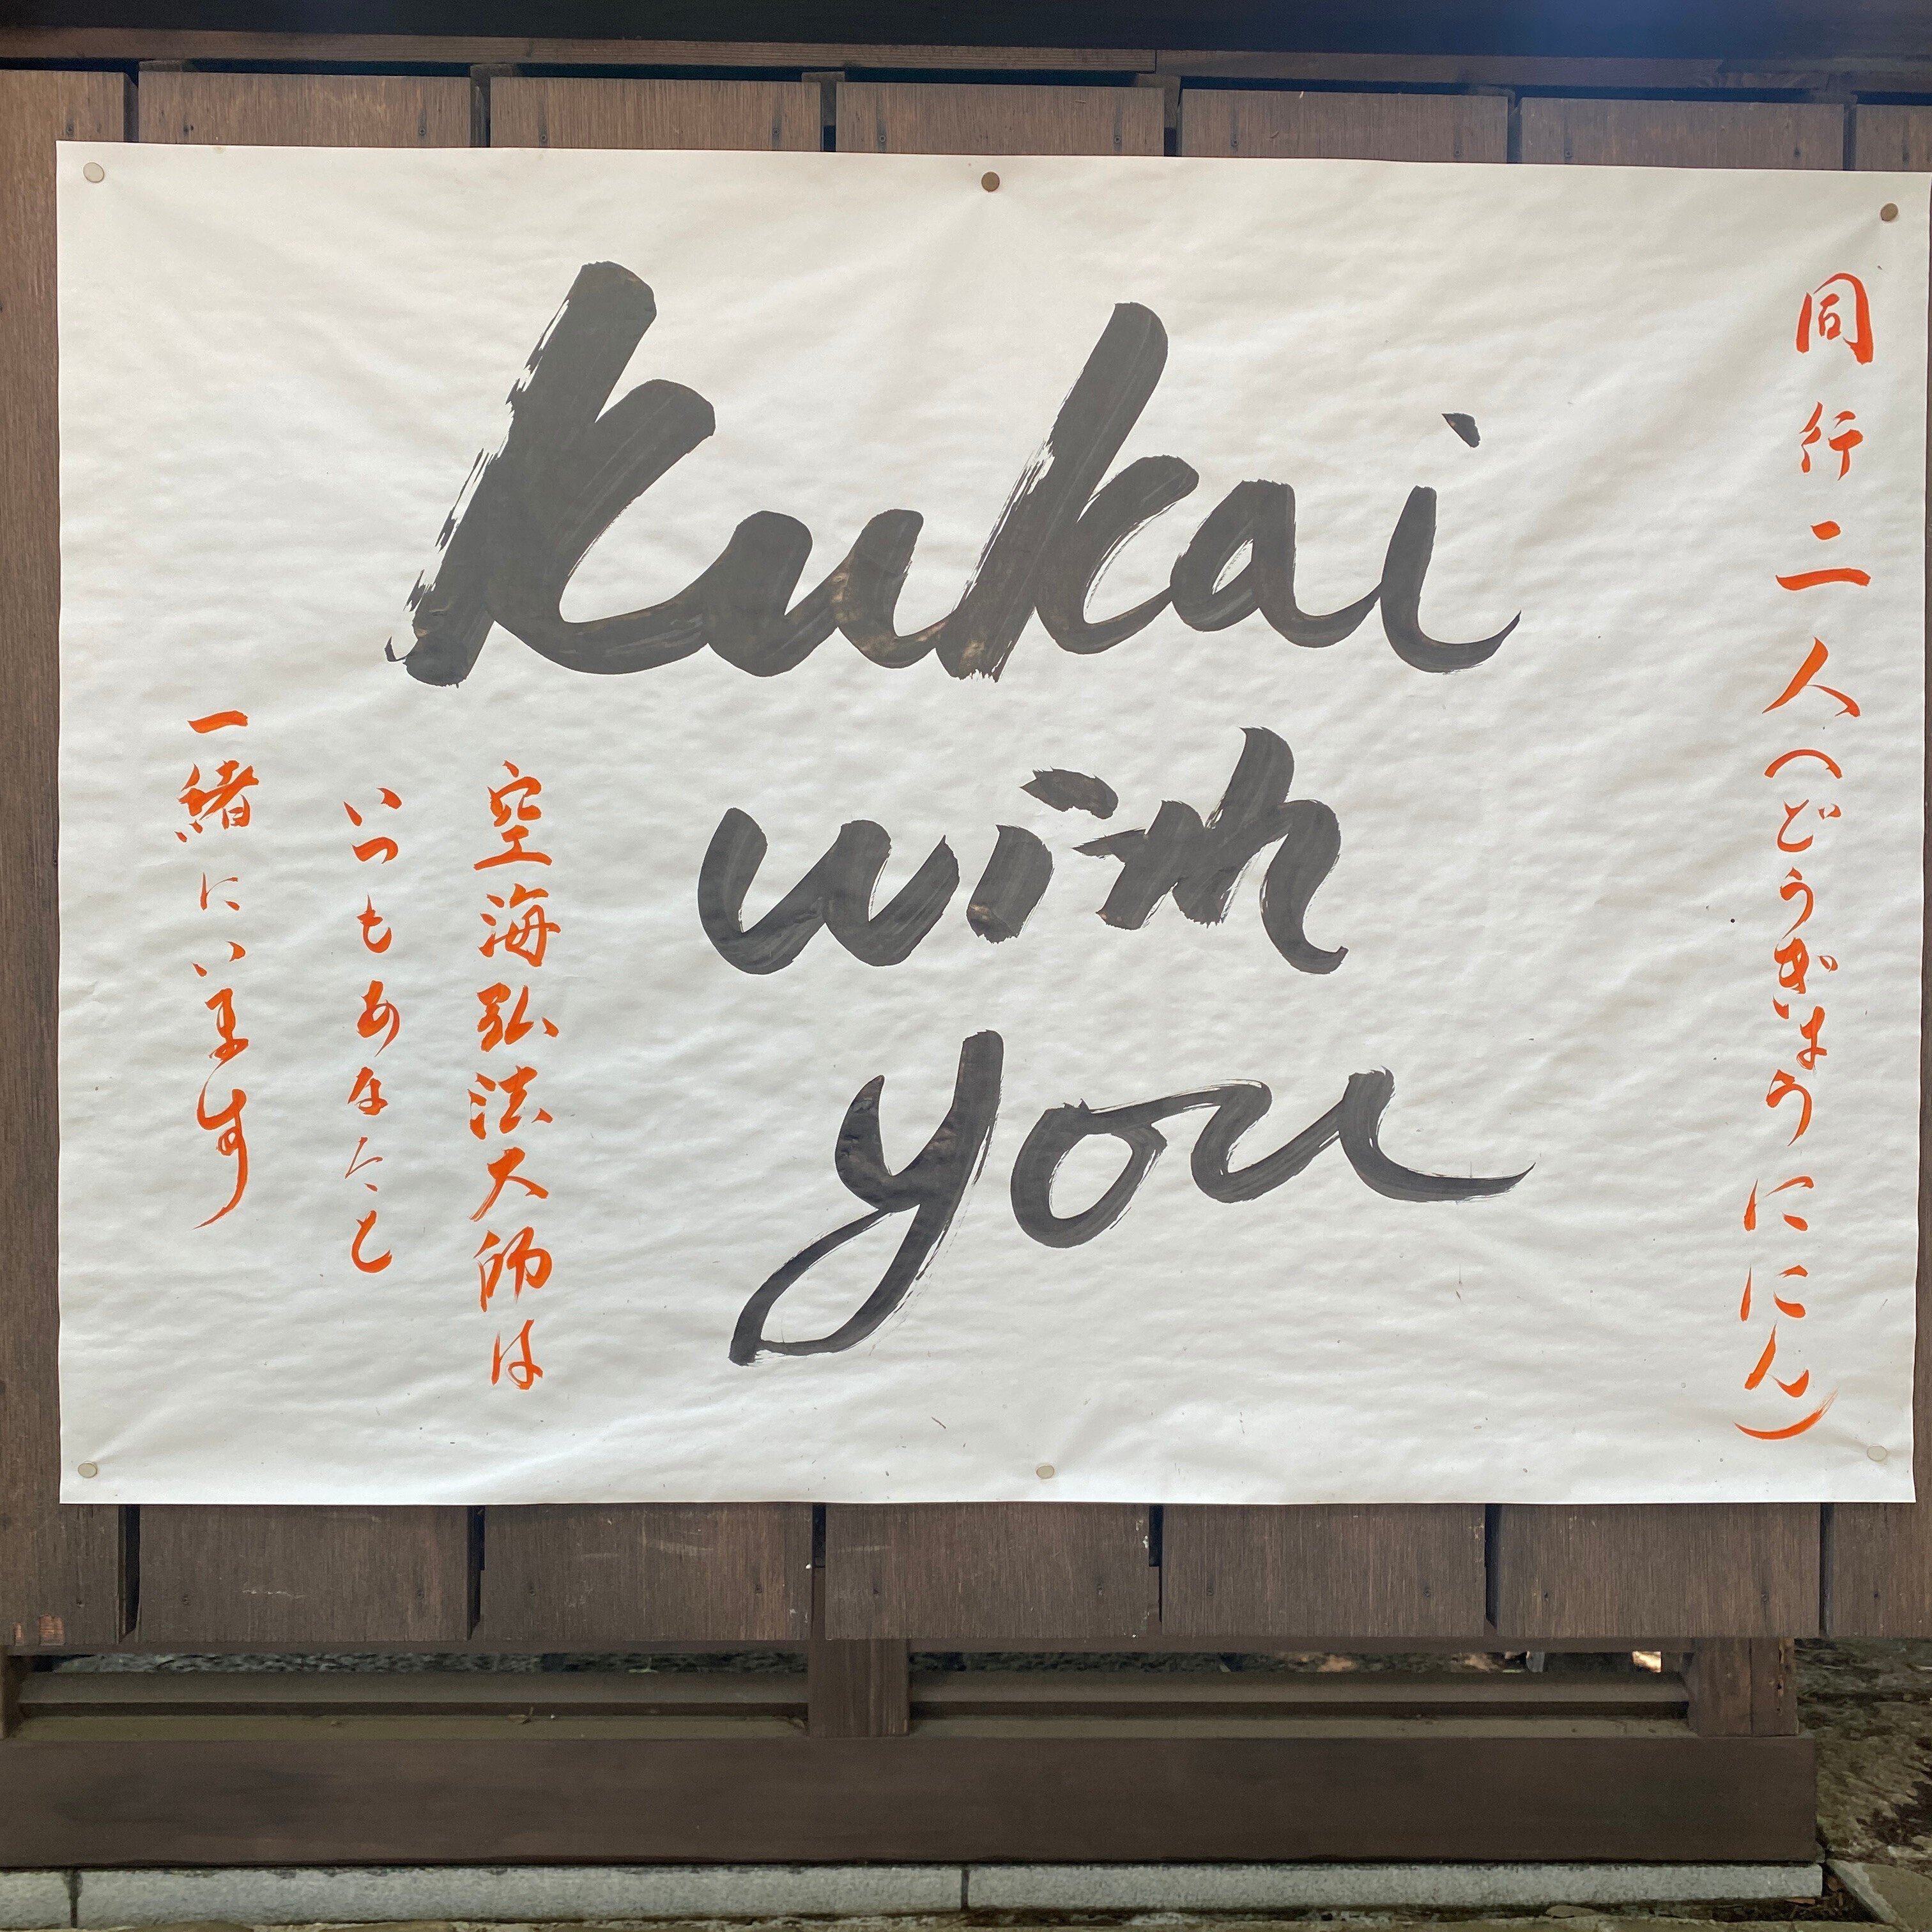 同行二人(どうぎょうににん)
Kukai
with
you
空海弘法大師は
いつもあなたと
一緒にいます